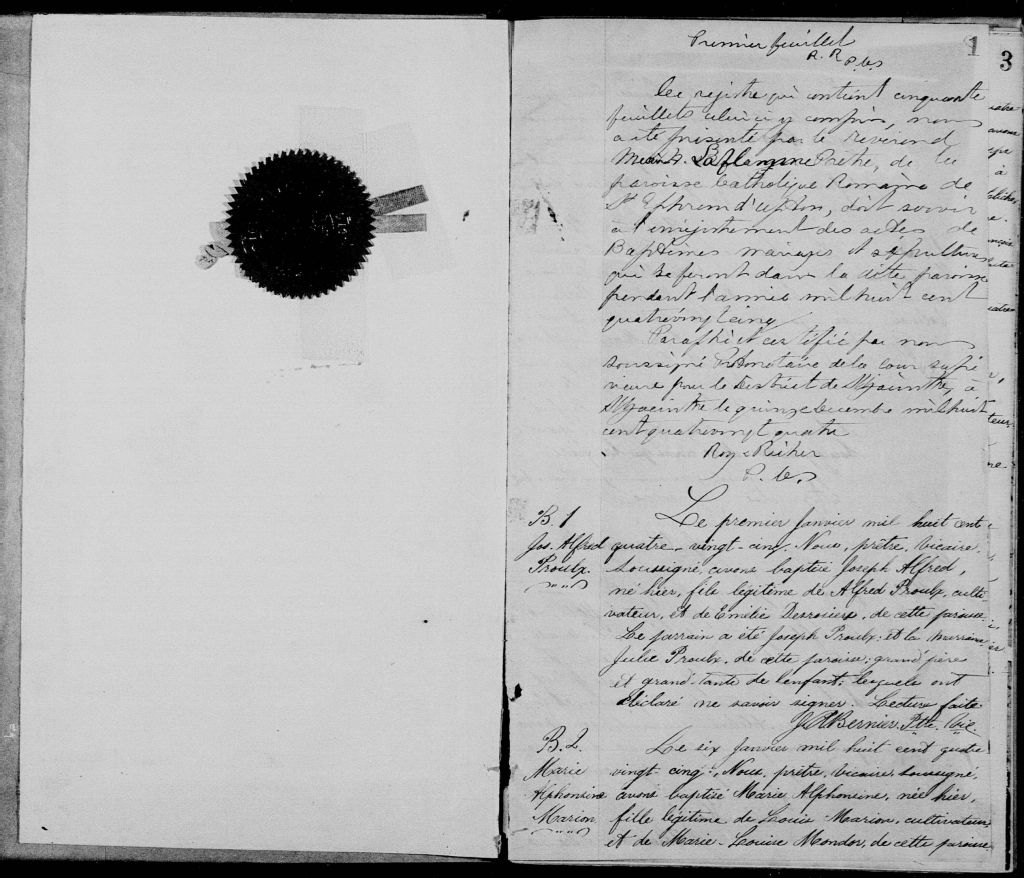 Premier feuillet
1
A. R. P.c.s
3
Ce registre qui contient cinquante
feuillets celui ci y compris, nous
a été présenté par le révérend
Laflamme Ptre, de la
paroisse Catholique Romaine de
St Ephrem d'Upton, doit servir
à l'enregistrement des actes de
Baptêmes mariages et sépultures
qui se feront dans la dite paroisse
pendant l'année mil huit cent
quatrevingt cinq
Paraphé et certifié par nous
soussigné Protonotaire de la cour supé
rieure pour le District de St Hyacinthe, à
St Hyacinthe le quinze Décembre mil huit
cent quatrevingt quatre
Roy & Richer
P. c. s
B. 1
Jos. Alfred
Proulx.
Le premier Janvier mil huit cent
quatre-vingt-cinq, Nous, prêtre, vicaire
soussigné, avons baptisé Joseph Alfred,
né hier, fils légitime de Alfred Proulx, culti-
vateur, et de Emélie Desrosiers, de cette paroisse.
Le parrain a été Joseph Proulx; et la marraine
Julie Proulx, de cette paroisse; grand père
et grand-tante de l'enfant; lesquels ont
déclaré ne savoir signer. Lecture faite
J. A. Bernier. Ptre. Vic.
B. 2.
Marie
Alphonsine
Marion
Le six Janvier mil huit cent quatre
vingt-cinq, Nous, prêtre, vicaire, soussigné
avons baptisé Marie Alphonsine, née hier,
fille légitime de Louis Marion, cultivateur,
et de Marie-Louise Mondor, de cette paroisse